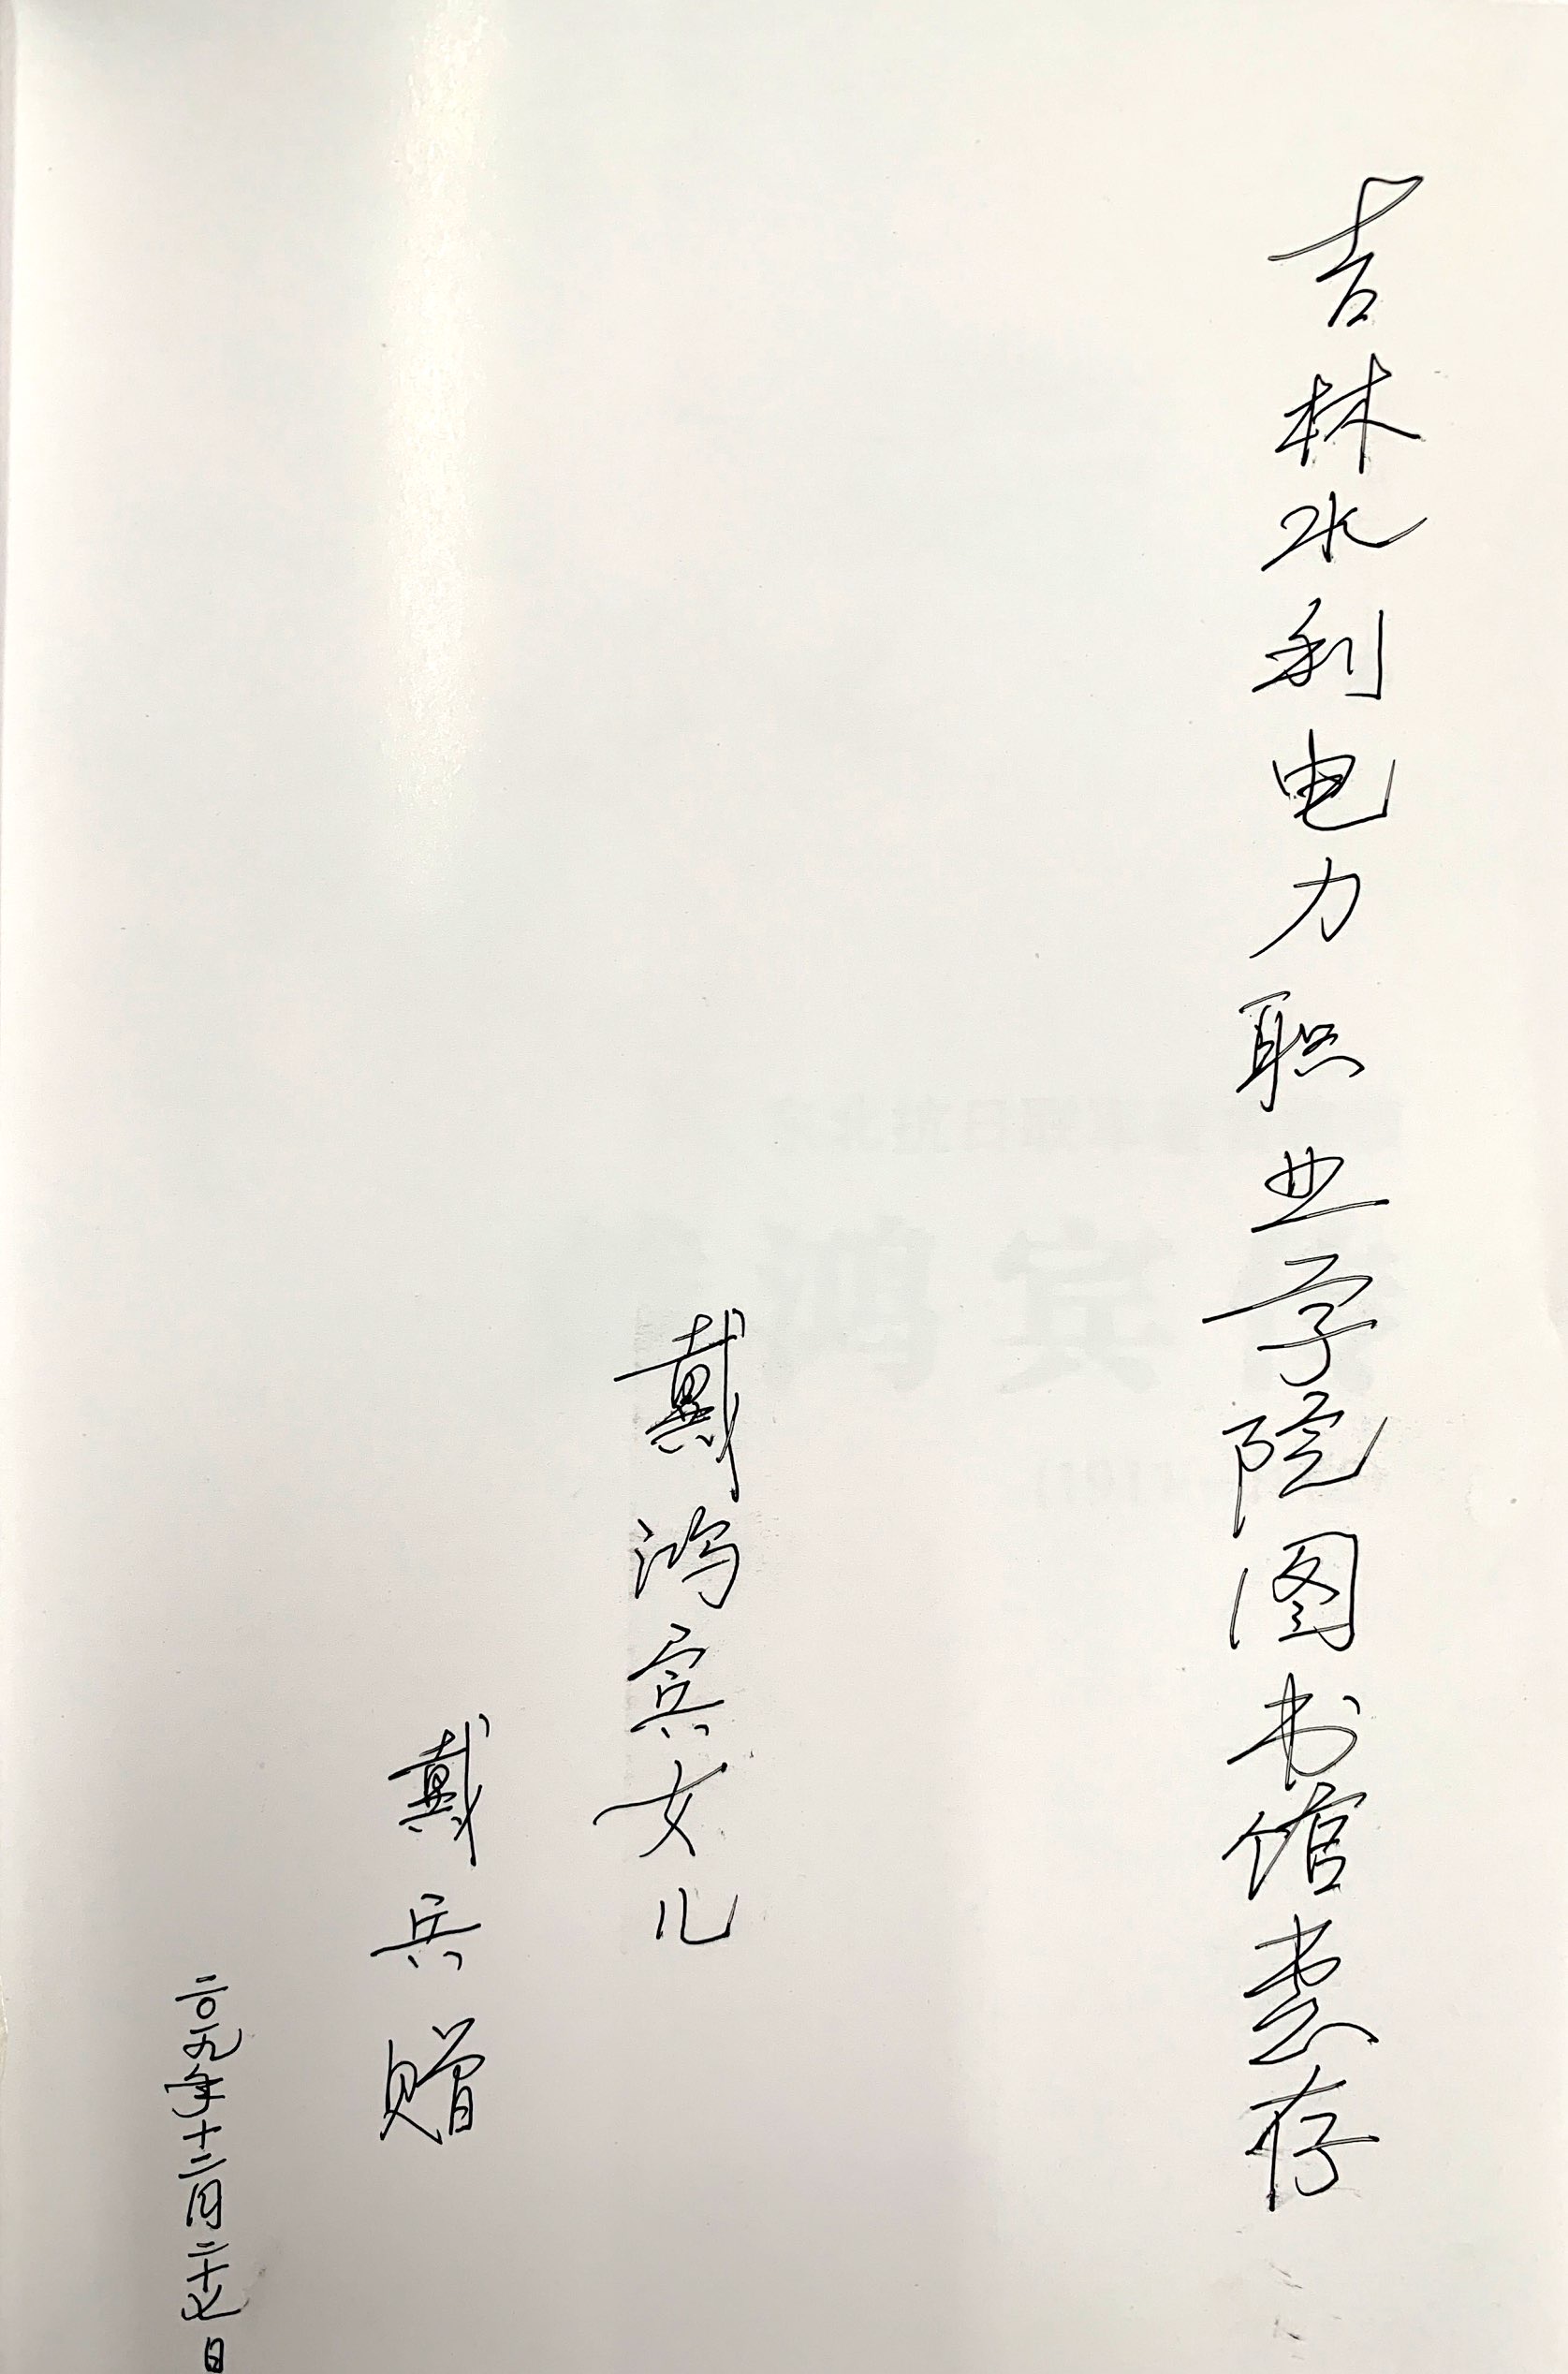 吉林水利电力职业学院图书馆惠存
戴鸿宾女儿
戴兵赠
二〇一九年十二月二十七日